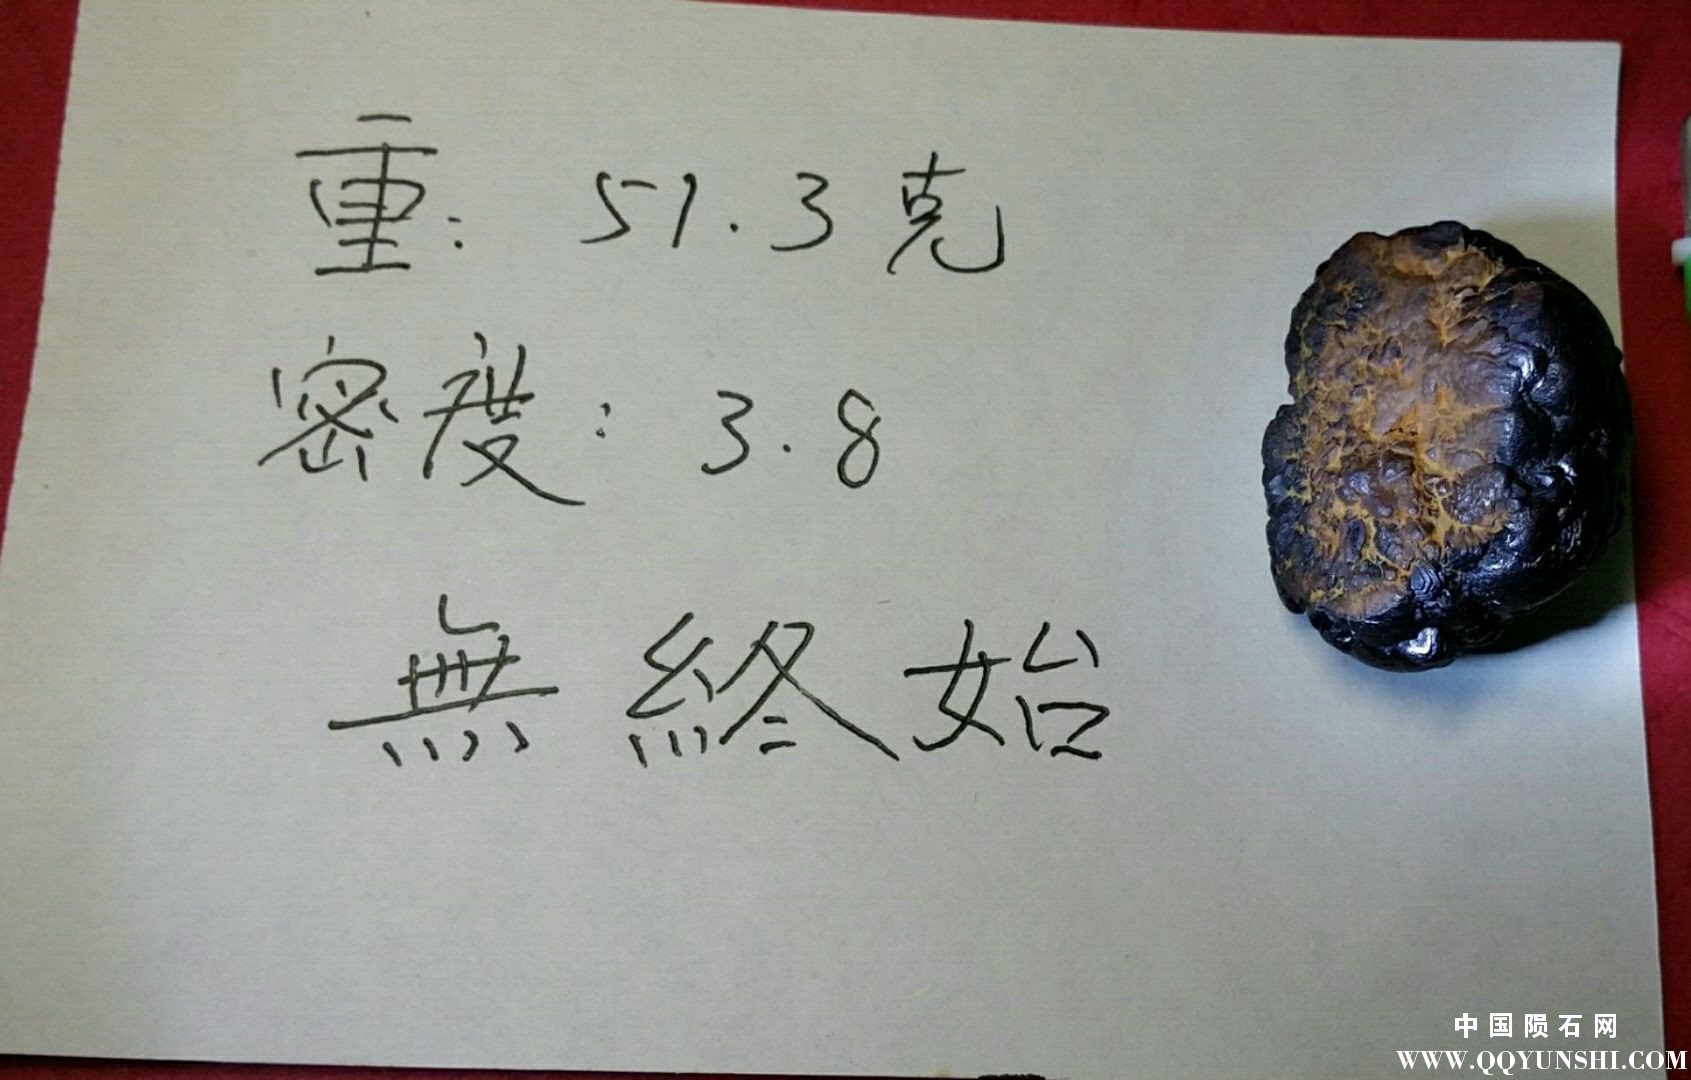 重：51.3克
密度：3.8
無終始
中国陨石网
WWW.QQYUNSHI.COM